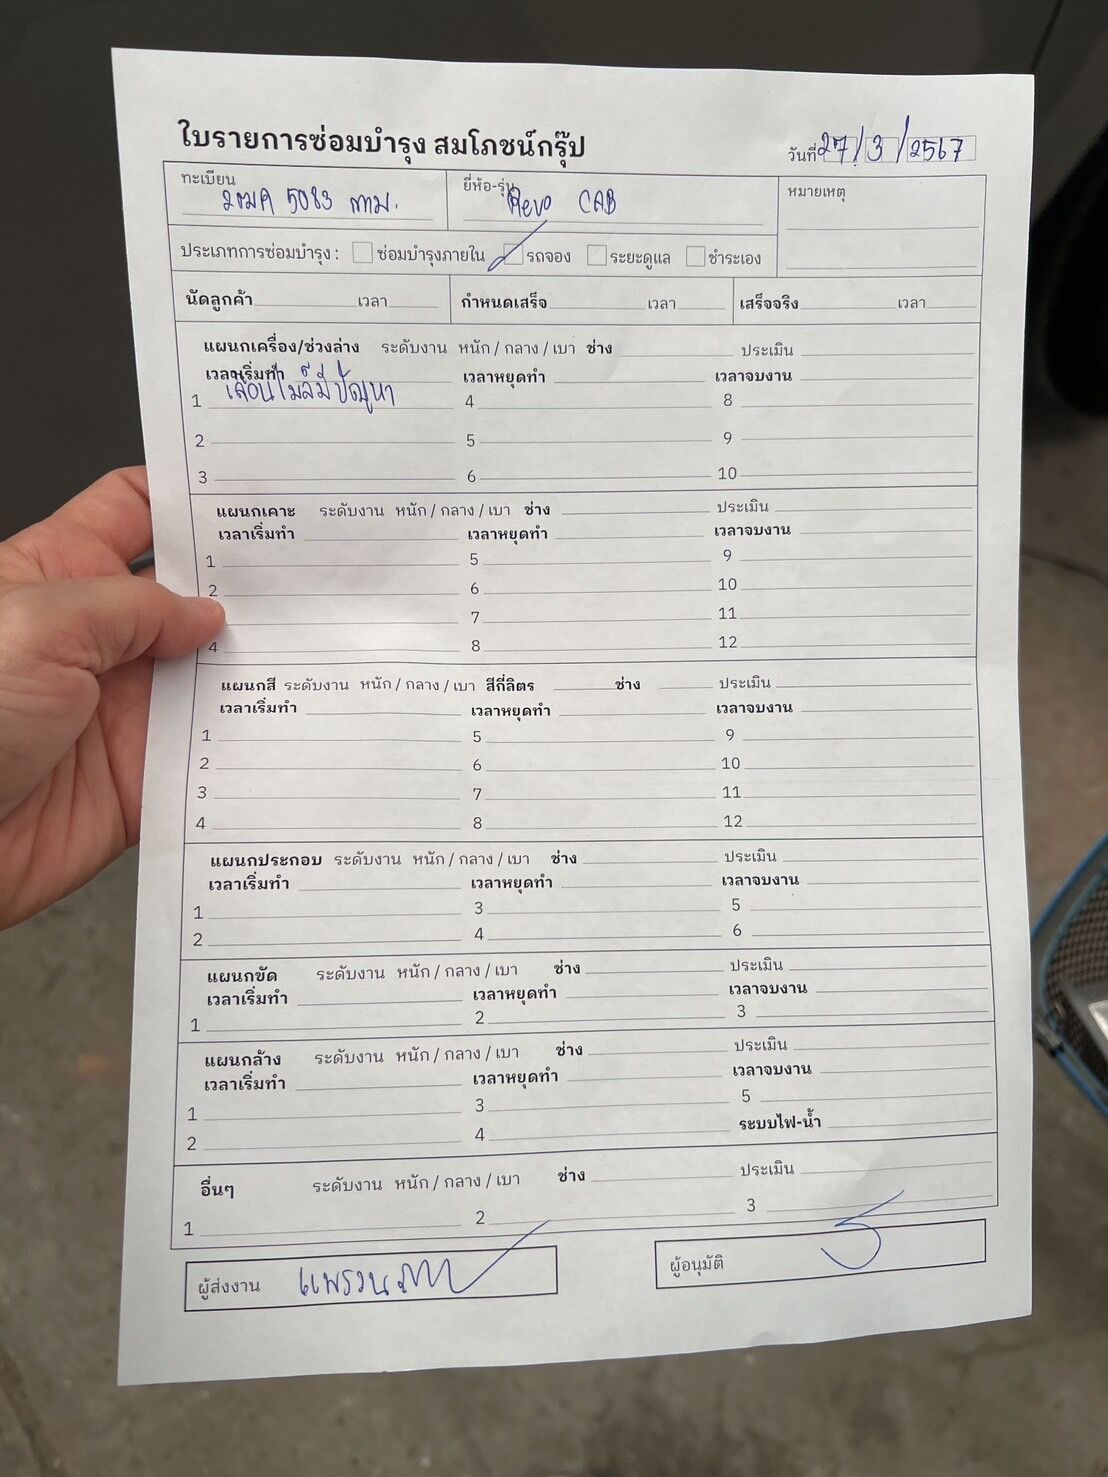 ใบรายการซ่อมบำรุง สมโภชน์กรุ๊ป
วันที่ 27/3/2567
ทะเบียน ยี่ห้อ-รุ่น หมายเหตุ
2ฒค 5083 กทม. Revo CAB
ประเภทการซ่อมบำรุง : ซ่อมบำรุงภายใน รถจอง ระยะดูแล ชำระเอง
นัดลูกค้า เวลา กำหนดเสร็จ เวลา เสร็จจริง เวลา
แผนกเครื่อง/ช่วงล่าง ระดับงาน หนัก / กลาง / เบา ช่าง ประเมิน
เวลาเริ่มทำ เวลาหยุดทำ เวลาจบงาน
1 เลื่อนไมล์มีปัญหา 4 8
2 5 9
3 6 10
แผนกเคาะ ระดับงาน หนัก / กลาง / เบา ช่าง ประเมิน
เวลาเริ่มทำ เวลาหยุดทำ เวลาจบงาน
1 5 9
2 6 10
7 11
4 8 12
แผนกสี ระดับงาน หนัก / กลาง / เบา สีกี่ลิตร ช่าง ประเมิน
เวลาเริ่มทำ เวลาหยุดทำ เวลาจบงาน
1 5 9
2 6 10
3 7 11
4 8 12
แผนกประกอบ ระดับงาน หนัก / กลาง / เบา ช่าง ประเมิน
เวลาเริ่มทำ เวลาหยุดทำ เวลาจบงาน
1 3 5
2 4 6
แผนกขัด ระดับงาน หนัก / กลาง / เบา ช่าง ประเมิน
เวลาเริ่มทำ เวลาหยุดทำ เวลาจบงาน
1 2 3
แผนกล้าง ระดับงาน หนัก / กลาง / เบา ช่าง ประเมิน
เวลาเริ่มทำ เวลาหยุดทำ เวลาจบงาน
1 3 5
2 4 ระบบไฟ-น้ำ
อื่นๆ ระดับงาน หนัก / กลาง / เบา ช่าง ประเมิน
1 2 3
ผู้ส่งงาน ผู้อนุมัติ